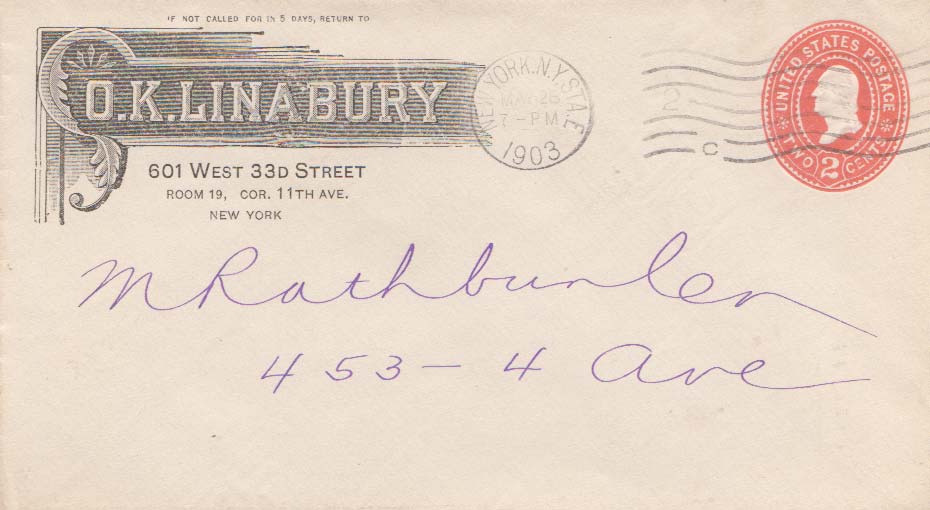 IF NOT CALLED FOR IN 5 DAYS, RETURN TO
O.K. LINABURY
601 WEST 33D STREET
ROOM 19, COR. 11TH AVE.
NEW YORK
NEW YORK, N.Y. STA. E
7-PM
1903
2
C
UNITED STATES POSTAGE
TWO 2 CENTS
M Rathbunlen
453 - 4 Ave